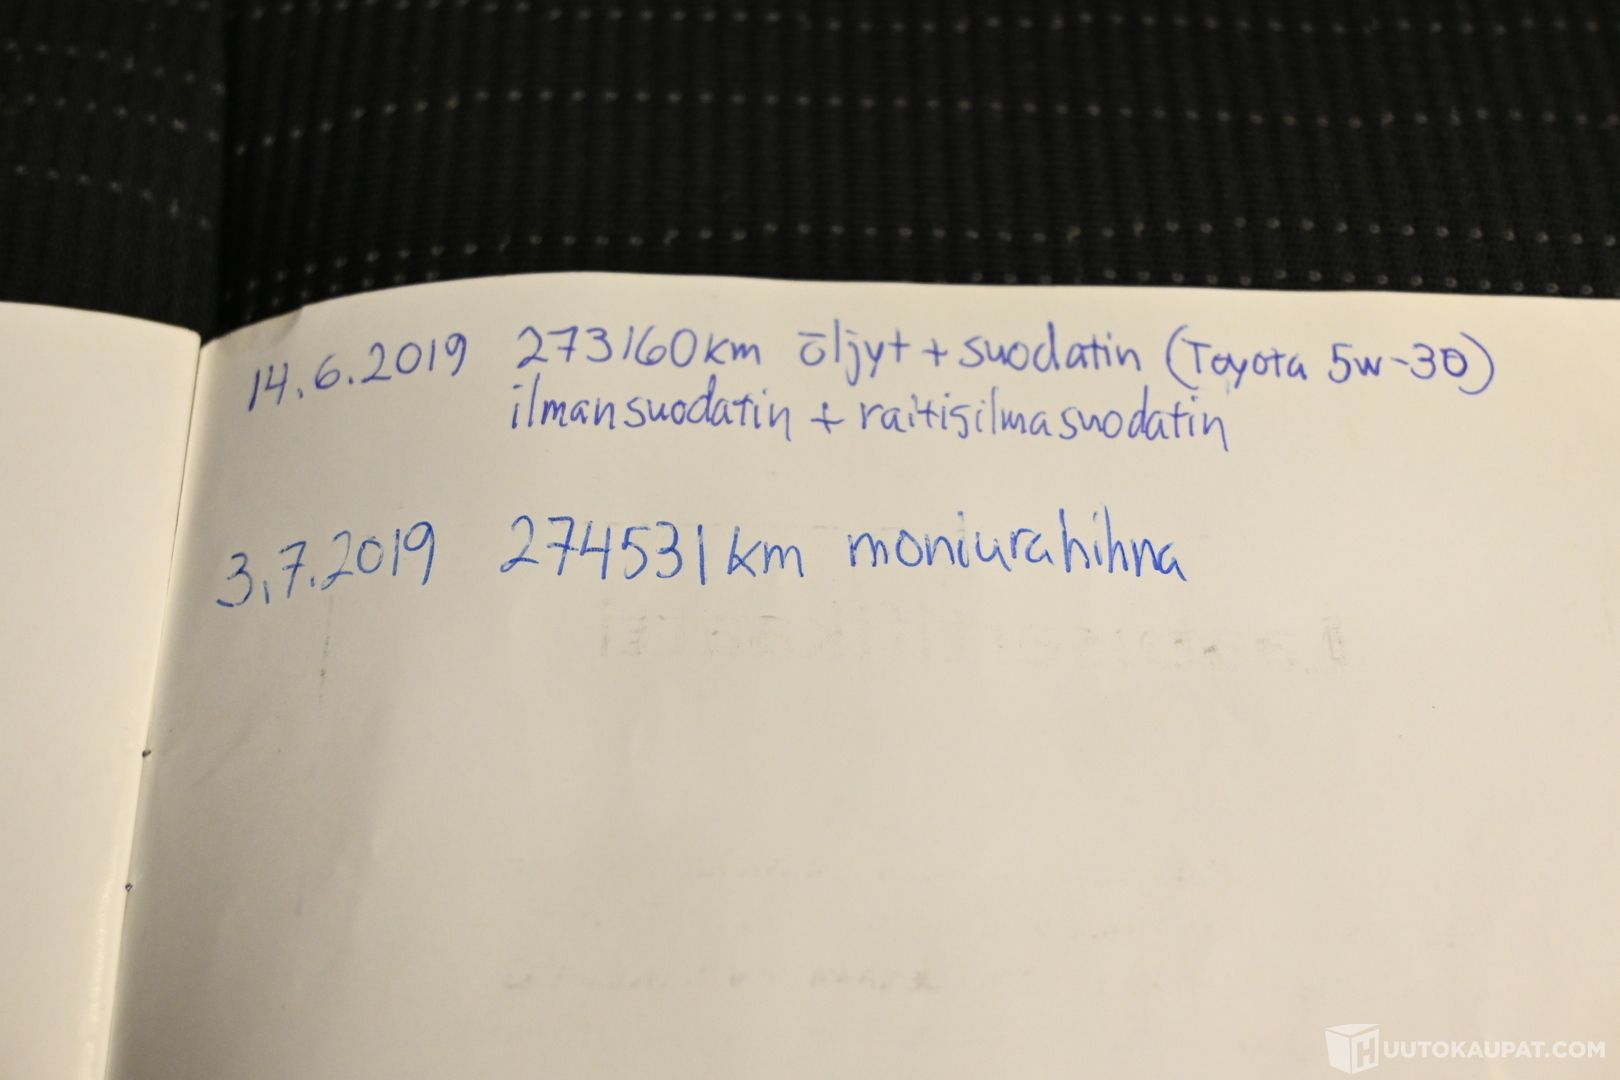 14.6.2019 273160km öljyt + suodatin (Toyota 5w-30)
ilmansuodatin + raitisilmasuodatin
3.7.2019 274531km moniurahihna
HUUTOKAUPAT.COM